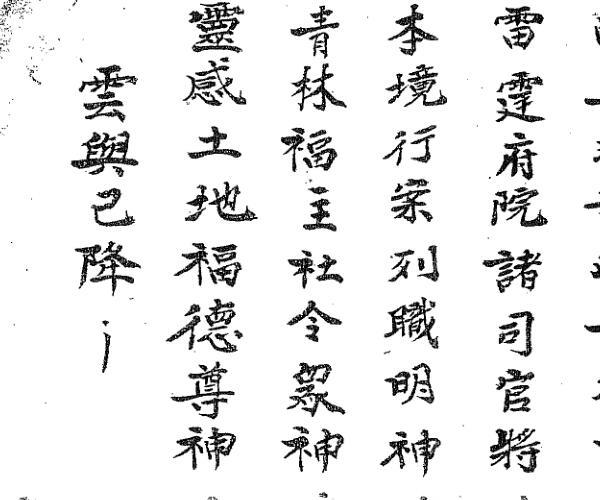 雷霆府院諸司官將
本境行案列職明神
青林福主社令眾神
靈感土地福德尊神
雲輿已降